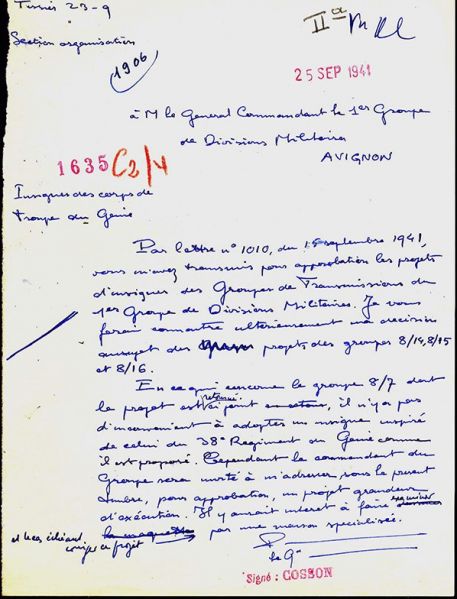 Tunis 23-9
IIa
Section organisation
1906
25 SEP 1941
à M le General Commandant le 1er Groupe
de Divisions Militaires
AVIGNON
1635 C2/4
Insignes des corps de
troupe du Génie
Par lettre n° 1010, du 15 septembre 1941,
vous m'avez transmis pour approbation les projets
d'insignes des Groupes de Transmissions du
1er Groupe de Divisions Militaires. Je vous
ferai connaitre ultérieurement ma decision
au sujet des projets des groupes 8/14, 8/15
et 8/16.
En ce qui concerne le groupe 8/7 dont
le projet est retourné ci joint, il n'y a pas
d'inconvenient à adopter un insigne inspiré
de celui du 38e Regiment du Genie comme
il est proposé. Cependant le commandant du
Groupe sera invité à m'adresser sous le present
timbre, pour approbation, un projet grandeur
d'exécution. Il y aurait interet à faire examiner
et le cas échéant
corriger ce projet
la maquette par une maison specialisée.
P
le Gal
Signé : COSSON